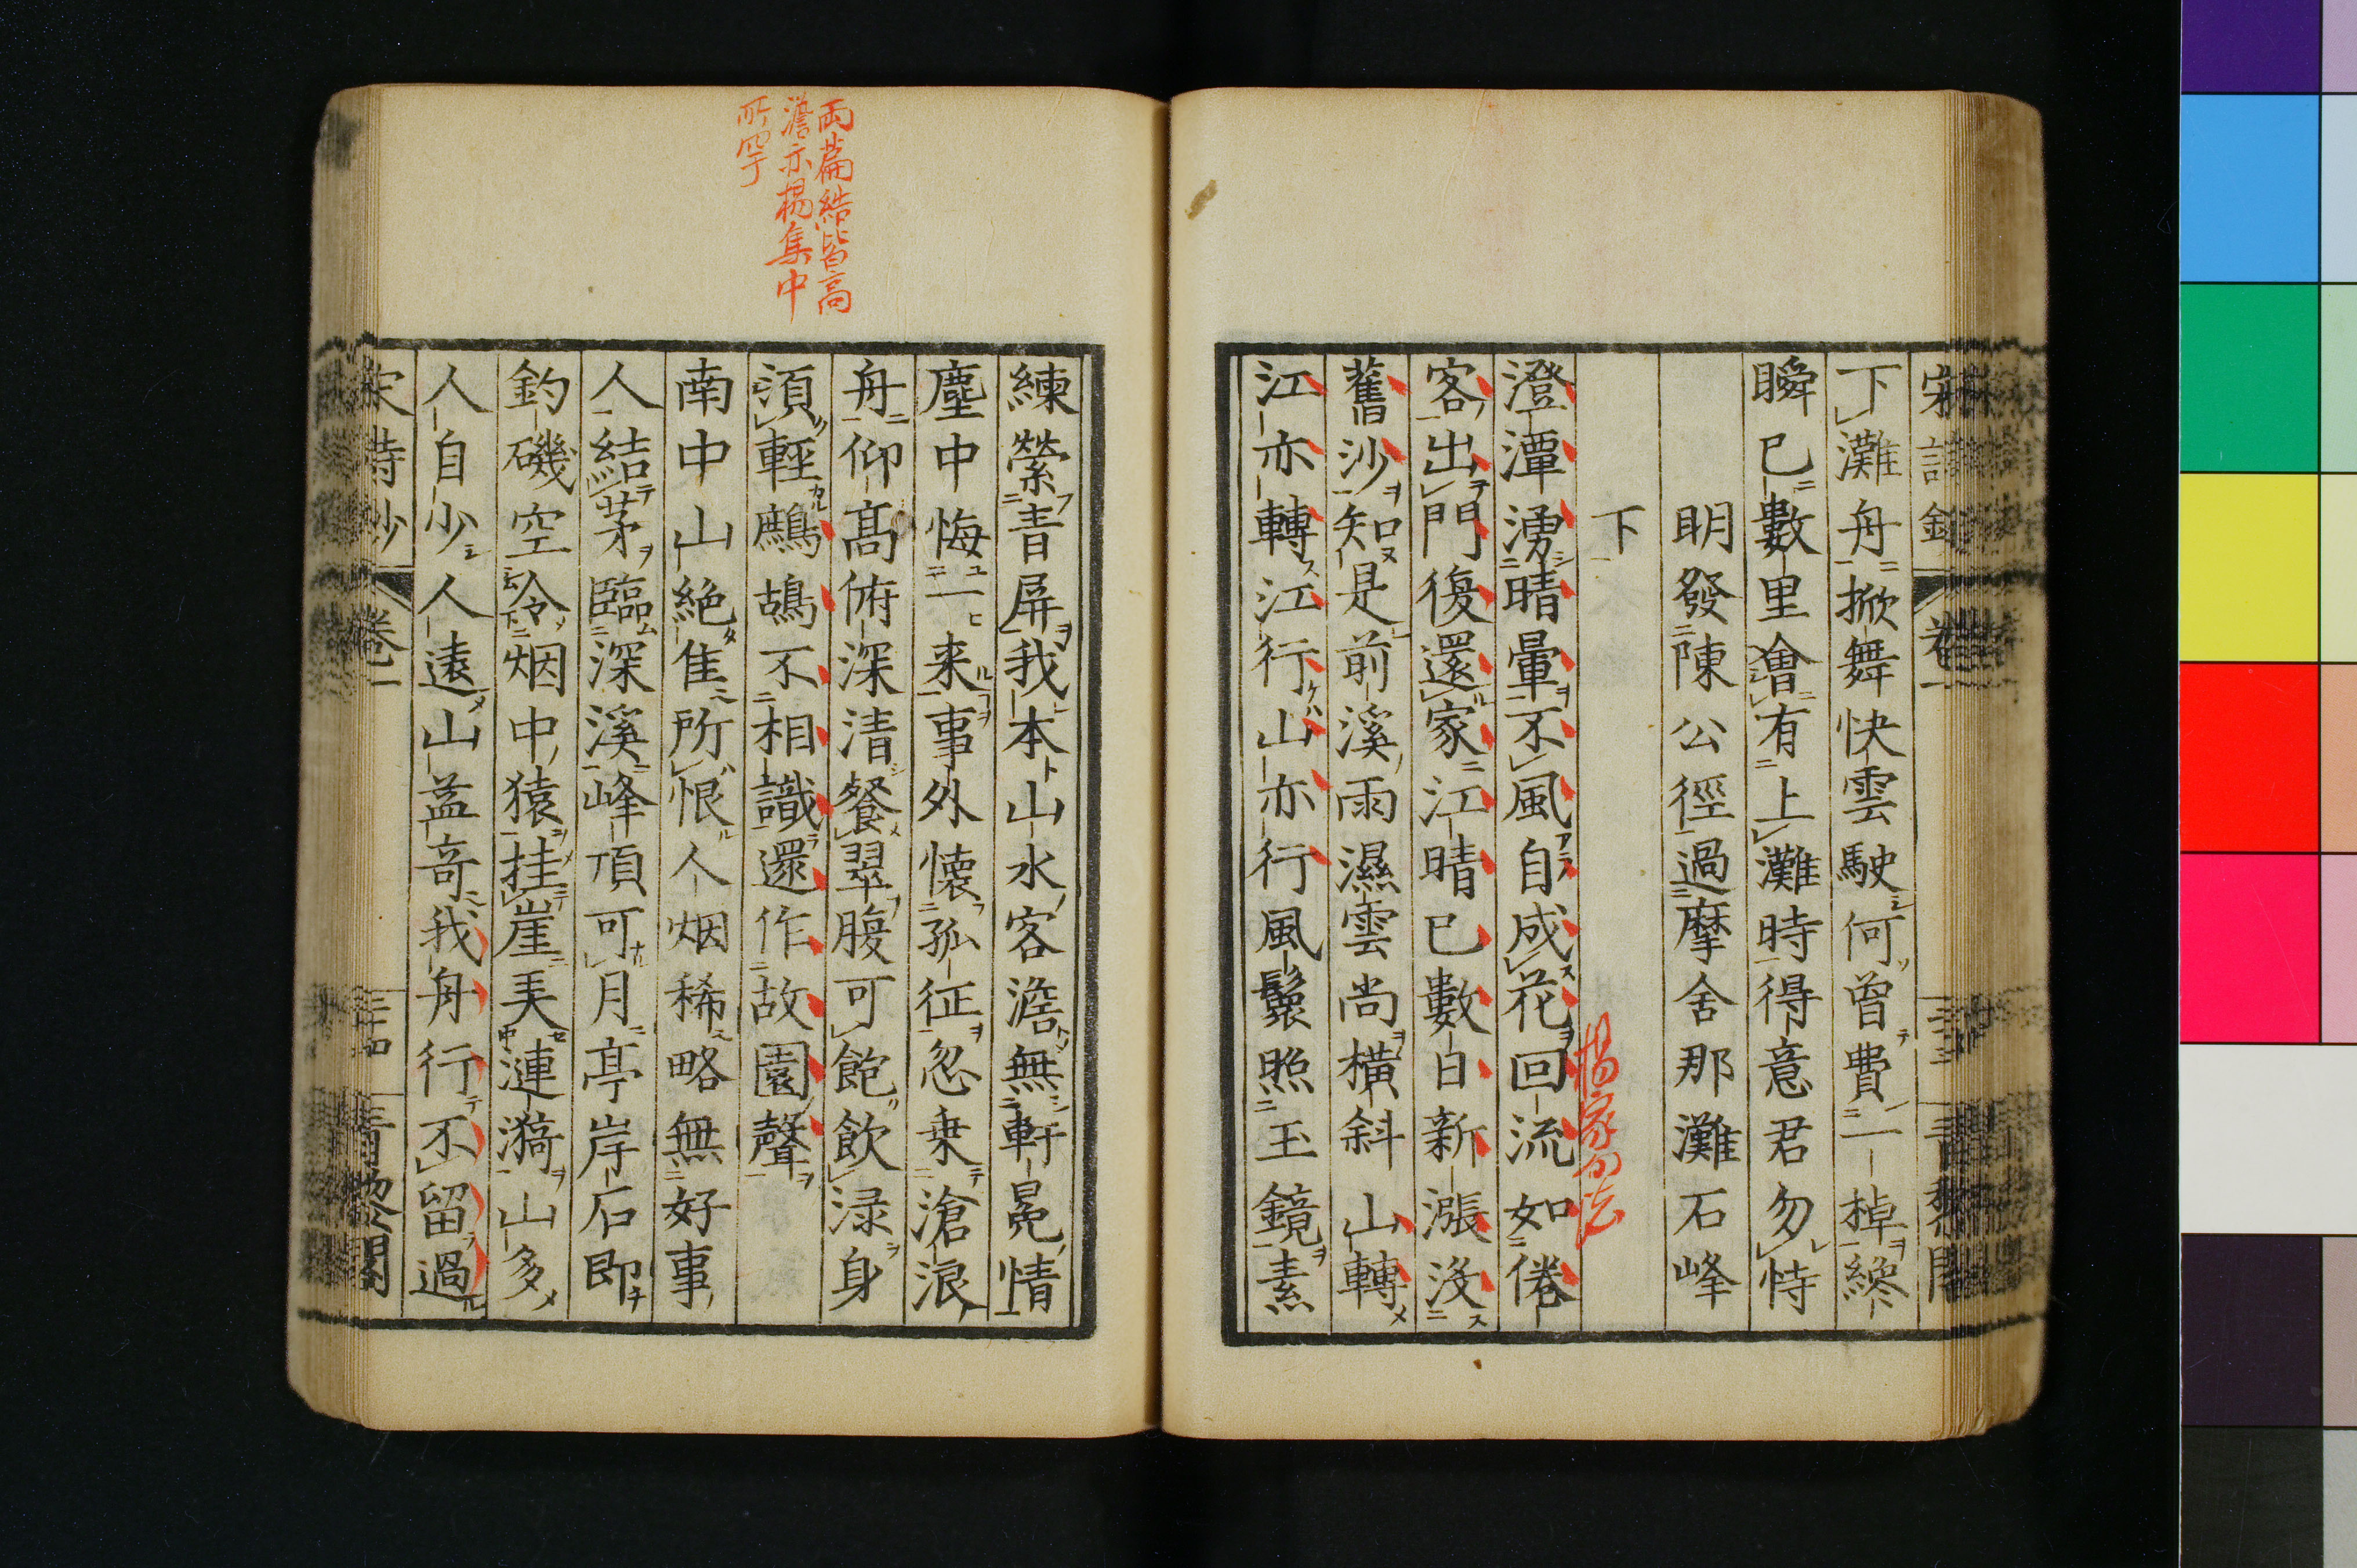 下灘舟掀舞快雲駛何曾費一棹纔
瞬已數里會有上灘時得意君勿恃
明發陳公徑過摩舍那灘石峰
下
楊家句法
澄潭湧晴暈不風自成花回流如倦
客出門復還家江晴已數日新漲沒
舊沙知是前溪雨濕雲尚橫斜山轉
江亦轉江行山亦行風鬟照玉鏡素
兩篇結皆高
澹亦楊集中
所罕
練縈青屏我本山水客澹無軒冕情
塵中悔一来事外懐孤征忽乗滄浪
舟仰髙俯深清餐翠腹可飽飲渌身
須輕鷓鴣不相識還作故園聲
南中山絶隹所恨人烟稀略無好事
人結茅臨深溪峰頂可月亭岸石即
釣磯空令烟中猿挂崖弄漣漪山多
人自少人遠山益竒我舟行不留過
宋詩鈔
卷一
三十四
青黎閣